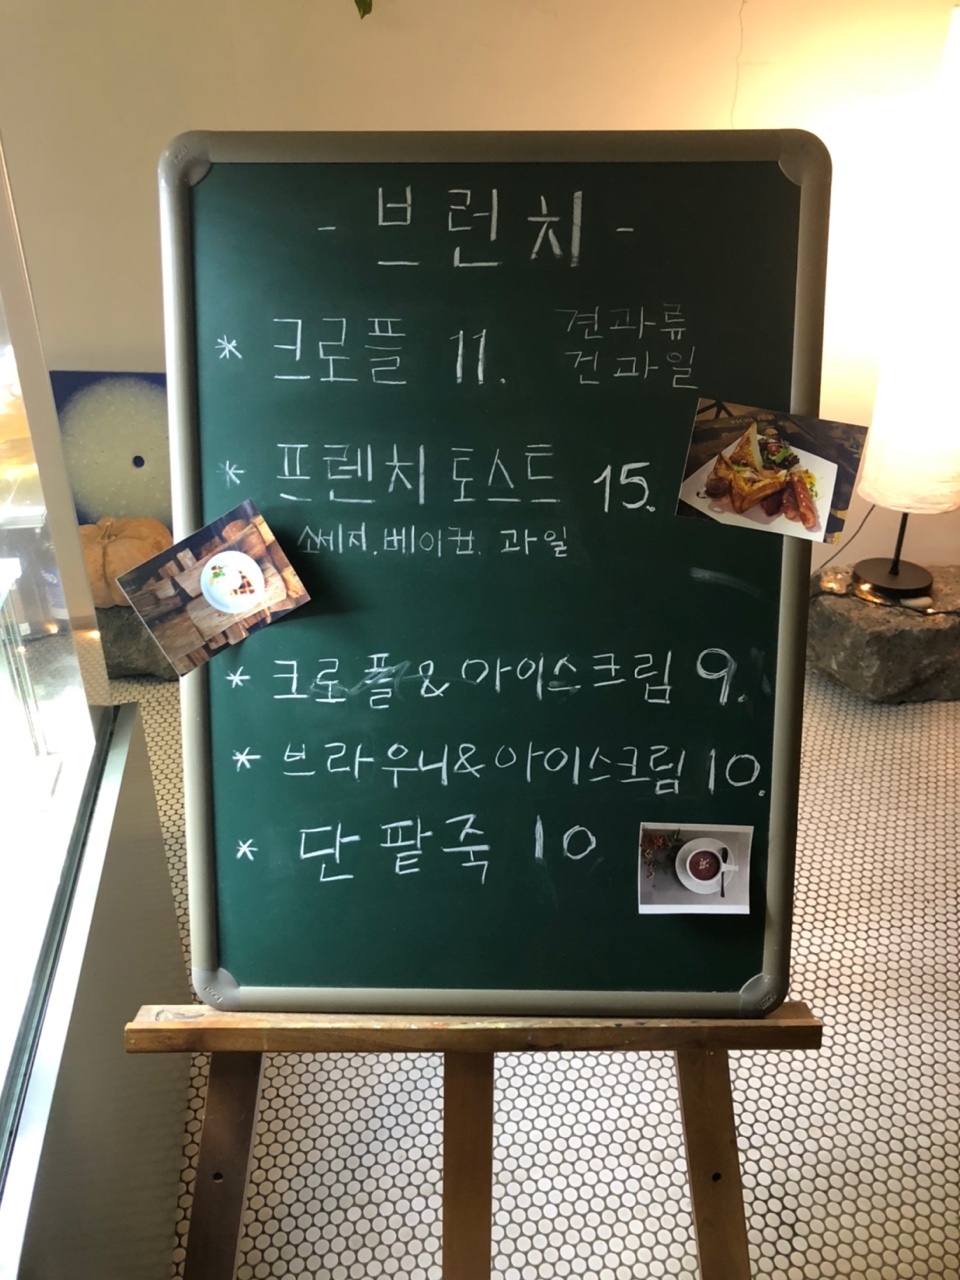 - 브런치 -
* 크로플 11. 견과류
건과일
* 프렌치 토스트 15.
소세지. 베이컨. 과일
* 크로플 & 아이스크림 9.
* 브라우니 & 아이스크림 10.
* 단팥죽 10